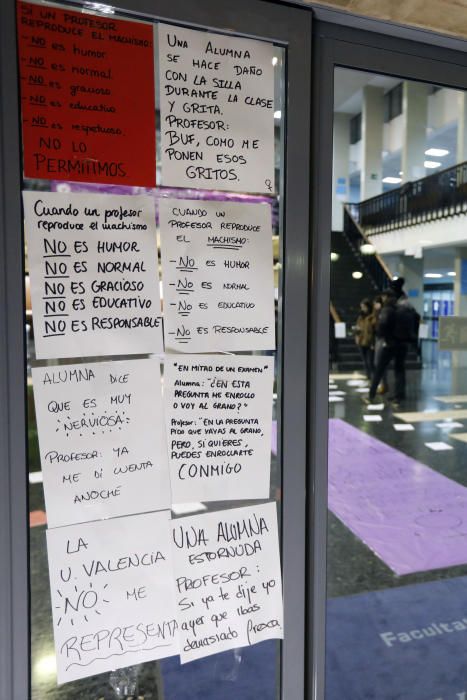 SI UN PROFESOR
REPRODUCE EL MACHISMO
- NO es humor.
- NO es normal.
- NO es gracioso
- NO es educativo
- NO es respetuoso.
NO LO
PERMITIMOS.
UNA ALUMNA
SE HACE DAÑO
CON LA SILLA
DURANTE LA CLASE
Y GRITA.
PROFESOR:
BUF, CÓMO ME
PONEN ESOS
GRITOS.
Cuando un profesor
reproduce el machismo
NO ES HUMOR
NO ES NORMAL
NO ES GRACIOSO
NO ES EDUCATIVO
NO ES RESPONSABLE
CUANDO UN
PROFESOR REPRODUCE
EL MACHISMO:
- NO ES HUMOR
- NO ES NORMAL
- NO ES EDUCATIVO
- NO ES RESPONSABLE
ALUMNA DICE
QUE ES MUY
NERVIOSA.
PROFESOR: YA
ME DI CUENTA
ANOCHE
"EN MITAD DE UN EXAMEN"
Alumna: "¿EN ESTA
PREGUNTA ME ENROLLO
O VOY AL GRANO?"
Profesor: "EN LA PREGUNTA
PIDO QUE VAYAS AL GRANO,
PERO, SI QUIERES,
PUEDES ENROLLARTE
CONMIGO
LA
U. VALENCIA
NO ME
REPRESENTA
UNA ALUMNA
ESTORNUDA
PROFESOR:
Si ya te dije yo
ayer que ibas
demasiado fresca.
Facultat